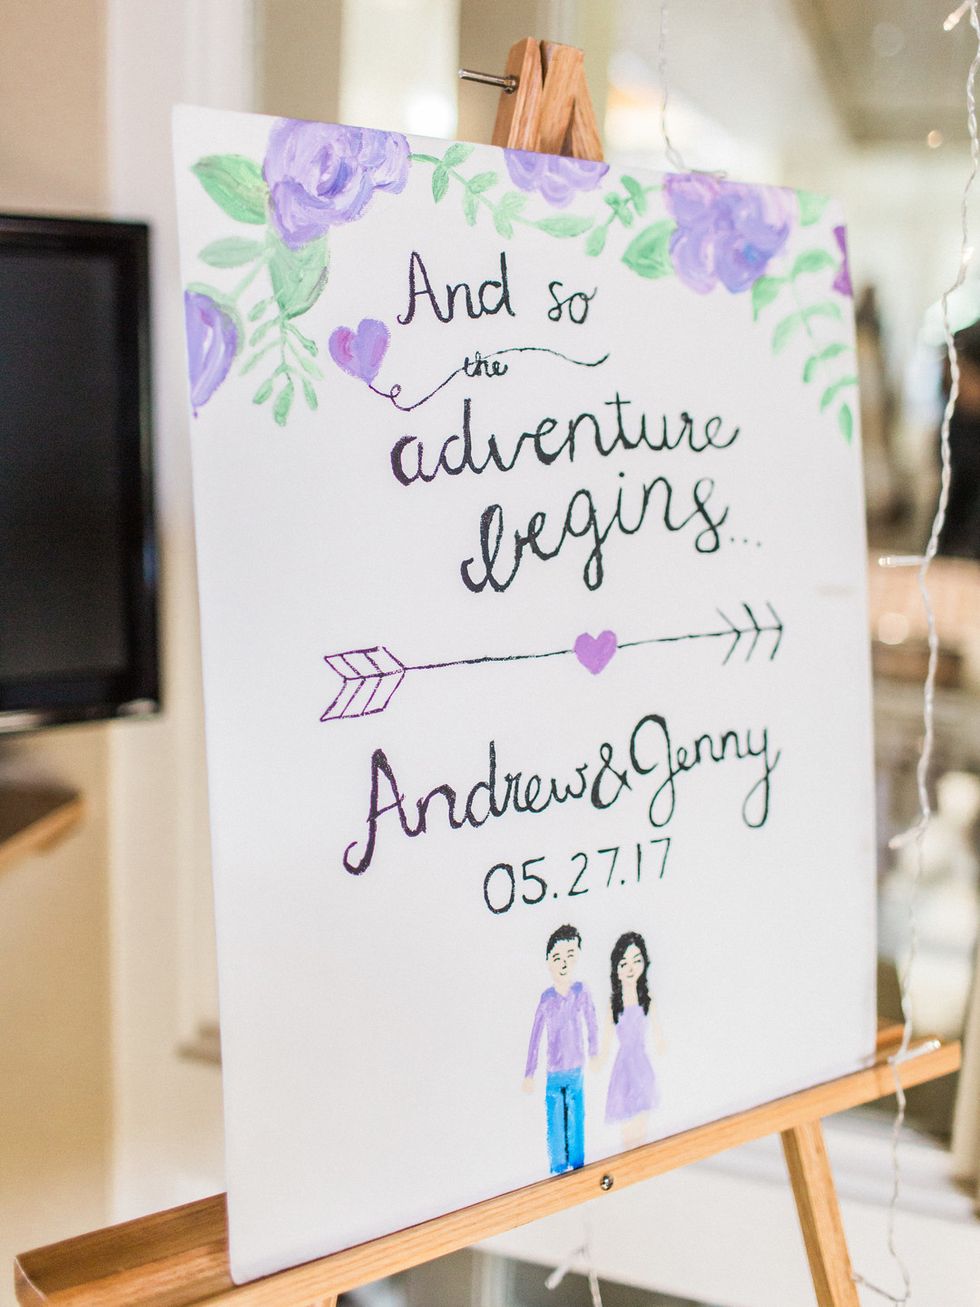 And so
the
adventure
begins...
Andrew & Jenny
05.27.17